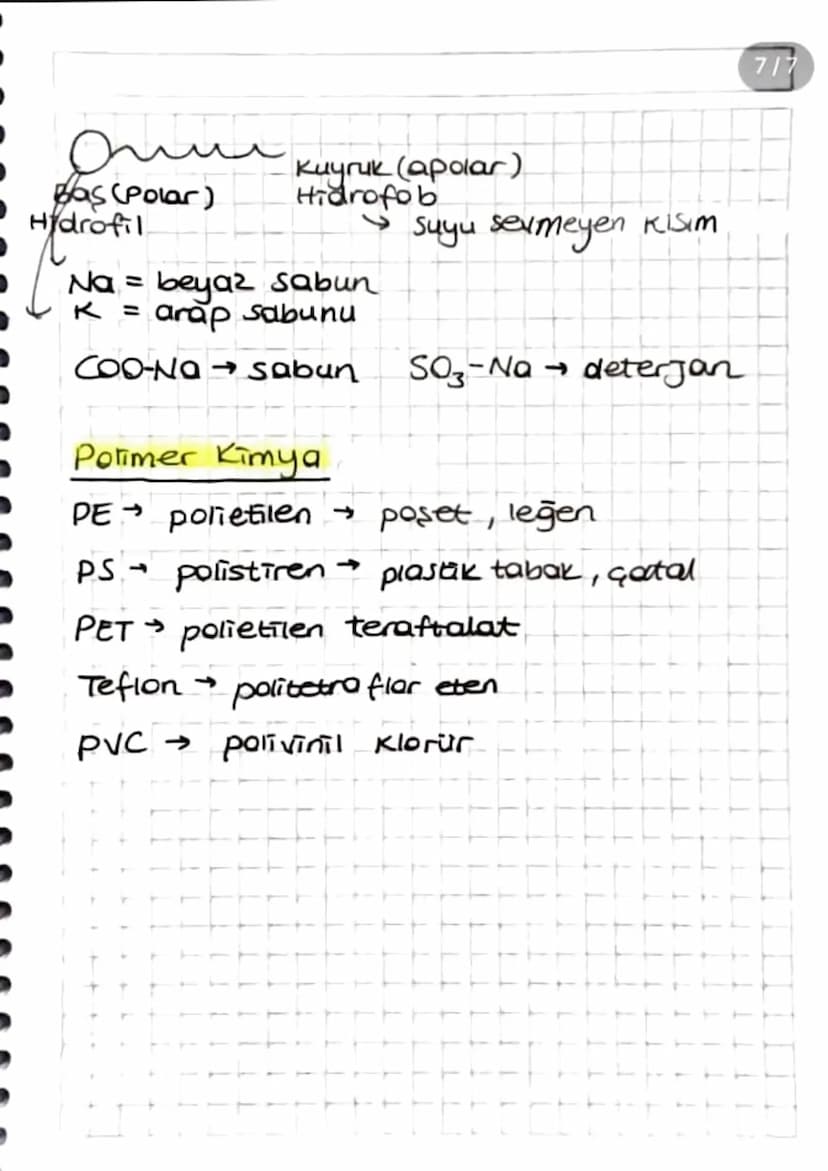 7/7
Kuyruk (apolar)
Baş (Polar) Hidrofob
Hidrofil → suyu sevmeyen kısım
Na = beyaz sabun
K = arap sabunu
COO-Na → sabun SO₃-Na → deterjan
Polimer Kimya
PE → polietilen → poşet, leğen
PS → polistiren → plastik tabak, çatal
PET → polietilen teraftalat
Teflon → politetra flor eten
PVC → polivinil klorür